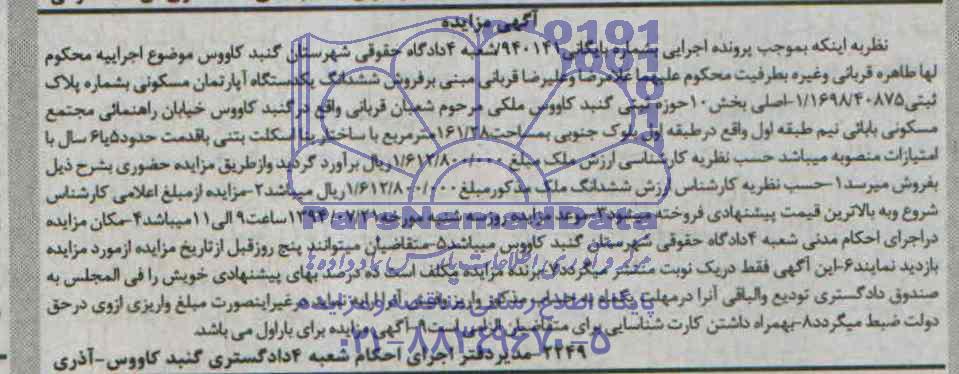 آگهی مزایده
نظر به اینکه بموجب پرونده اجرایی بشماره بایگانی ۹۴۰۱۴۱/شعبه ۴دادگاه حقوقی شهرستان گنبد کاووس موضوع اجراییه محکوم
لها طاهره قربانی وغیره بطرفیت محکوم علیهما غلامرضا وعلیرضا قربانی مبنی برفروش ششدانگ یکدستگاه آپارتمان مسکونی بشماره پلاک
ثبتی۱/۱۶۹۸/۴۰۸۷۵-اصلی بخش۱۰حوزه ثبتی گنبد کاووس ملکی مرحوم شعبان قربانی واقع درگنبد کاووس خیابان راهنمائی مجتمع
مسکونی بابائی نیم طبقه اول واقع درطبقه اول بلوک جنوبی بمساحت۱۶۱/۳۸مترمربع با ساختاربنا اسکلت بتنی باقدمت حدود۵یا۶ سال با
امتیازات منصوبه میباشد حسب نظریه کارشناسی ارزش ملک مبلغ ۱/۶۱۲/۸۰۰/۰۰۰ریال برآورد گردید وازطریق مزایده حضوری بشرح ذیل
بفروش میرسد۱-حسب نظریه کارشناس ارزش ششدانگ ملک مذکورمبلغ۱/۶۱۲/۸۰۰/۰۰۰ریال میباشد۲-مزایده ازمبلغ اعلامی کارشناس
شروع وبه بالاترین قیمت پیشنهادی فروخته میشود۳-موعد مزایده روزسه شنبه مورخه۱۳۹۴/۰۷/۲۱ساعت۹ الی۱۱میباشد۴-مکان مزایده
دراجرای احکام مدنی شعبه ۴دادگاه حقوقی شهرستان گنبد کاووس میباشد۵-متقاضیان میتوانند پنج روزقبل ازتاریخ مزایده ازمورد مزایده
بازدید نمایند۶-این آگهی فقط دریک نوبت منتشر میگردد۷-برنده مزایده مکلف است که درصد بهای پیشنهادی خویش را فی المجلس به
صندوق دادگستری تودیع والباقی آنرا درمهلت یکماه به حساب مذکور واریز نماید درغیراینصورت مبلغ واریزی ازوی درحق
دولت ضبط میگردد۸-بهمراه داشتن کارت شناسایی برای متقاضیان الزامی است۹-آگهی مزایده برای باراول می باشد.
۲۲۴۹-مدیردفتر اجرای احکام شعبه ۴دادگستری گنبد کاووس-آذری
ParsNamadData
۰۲۱-۸۸۳۴۹۶۷۰-۵